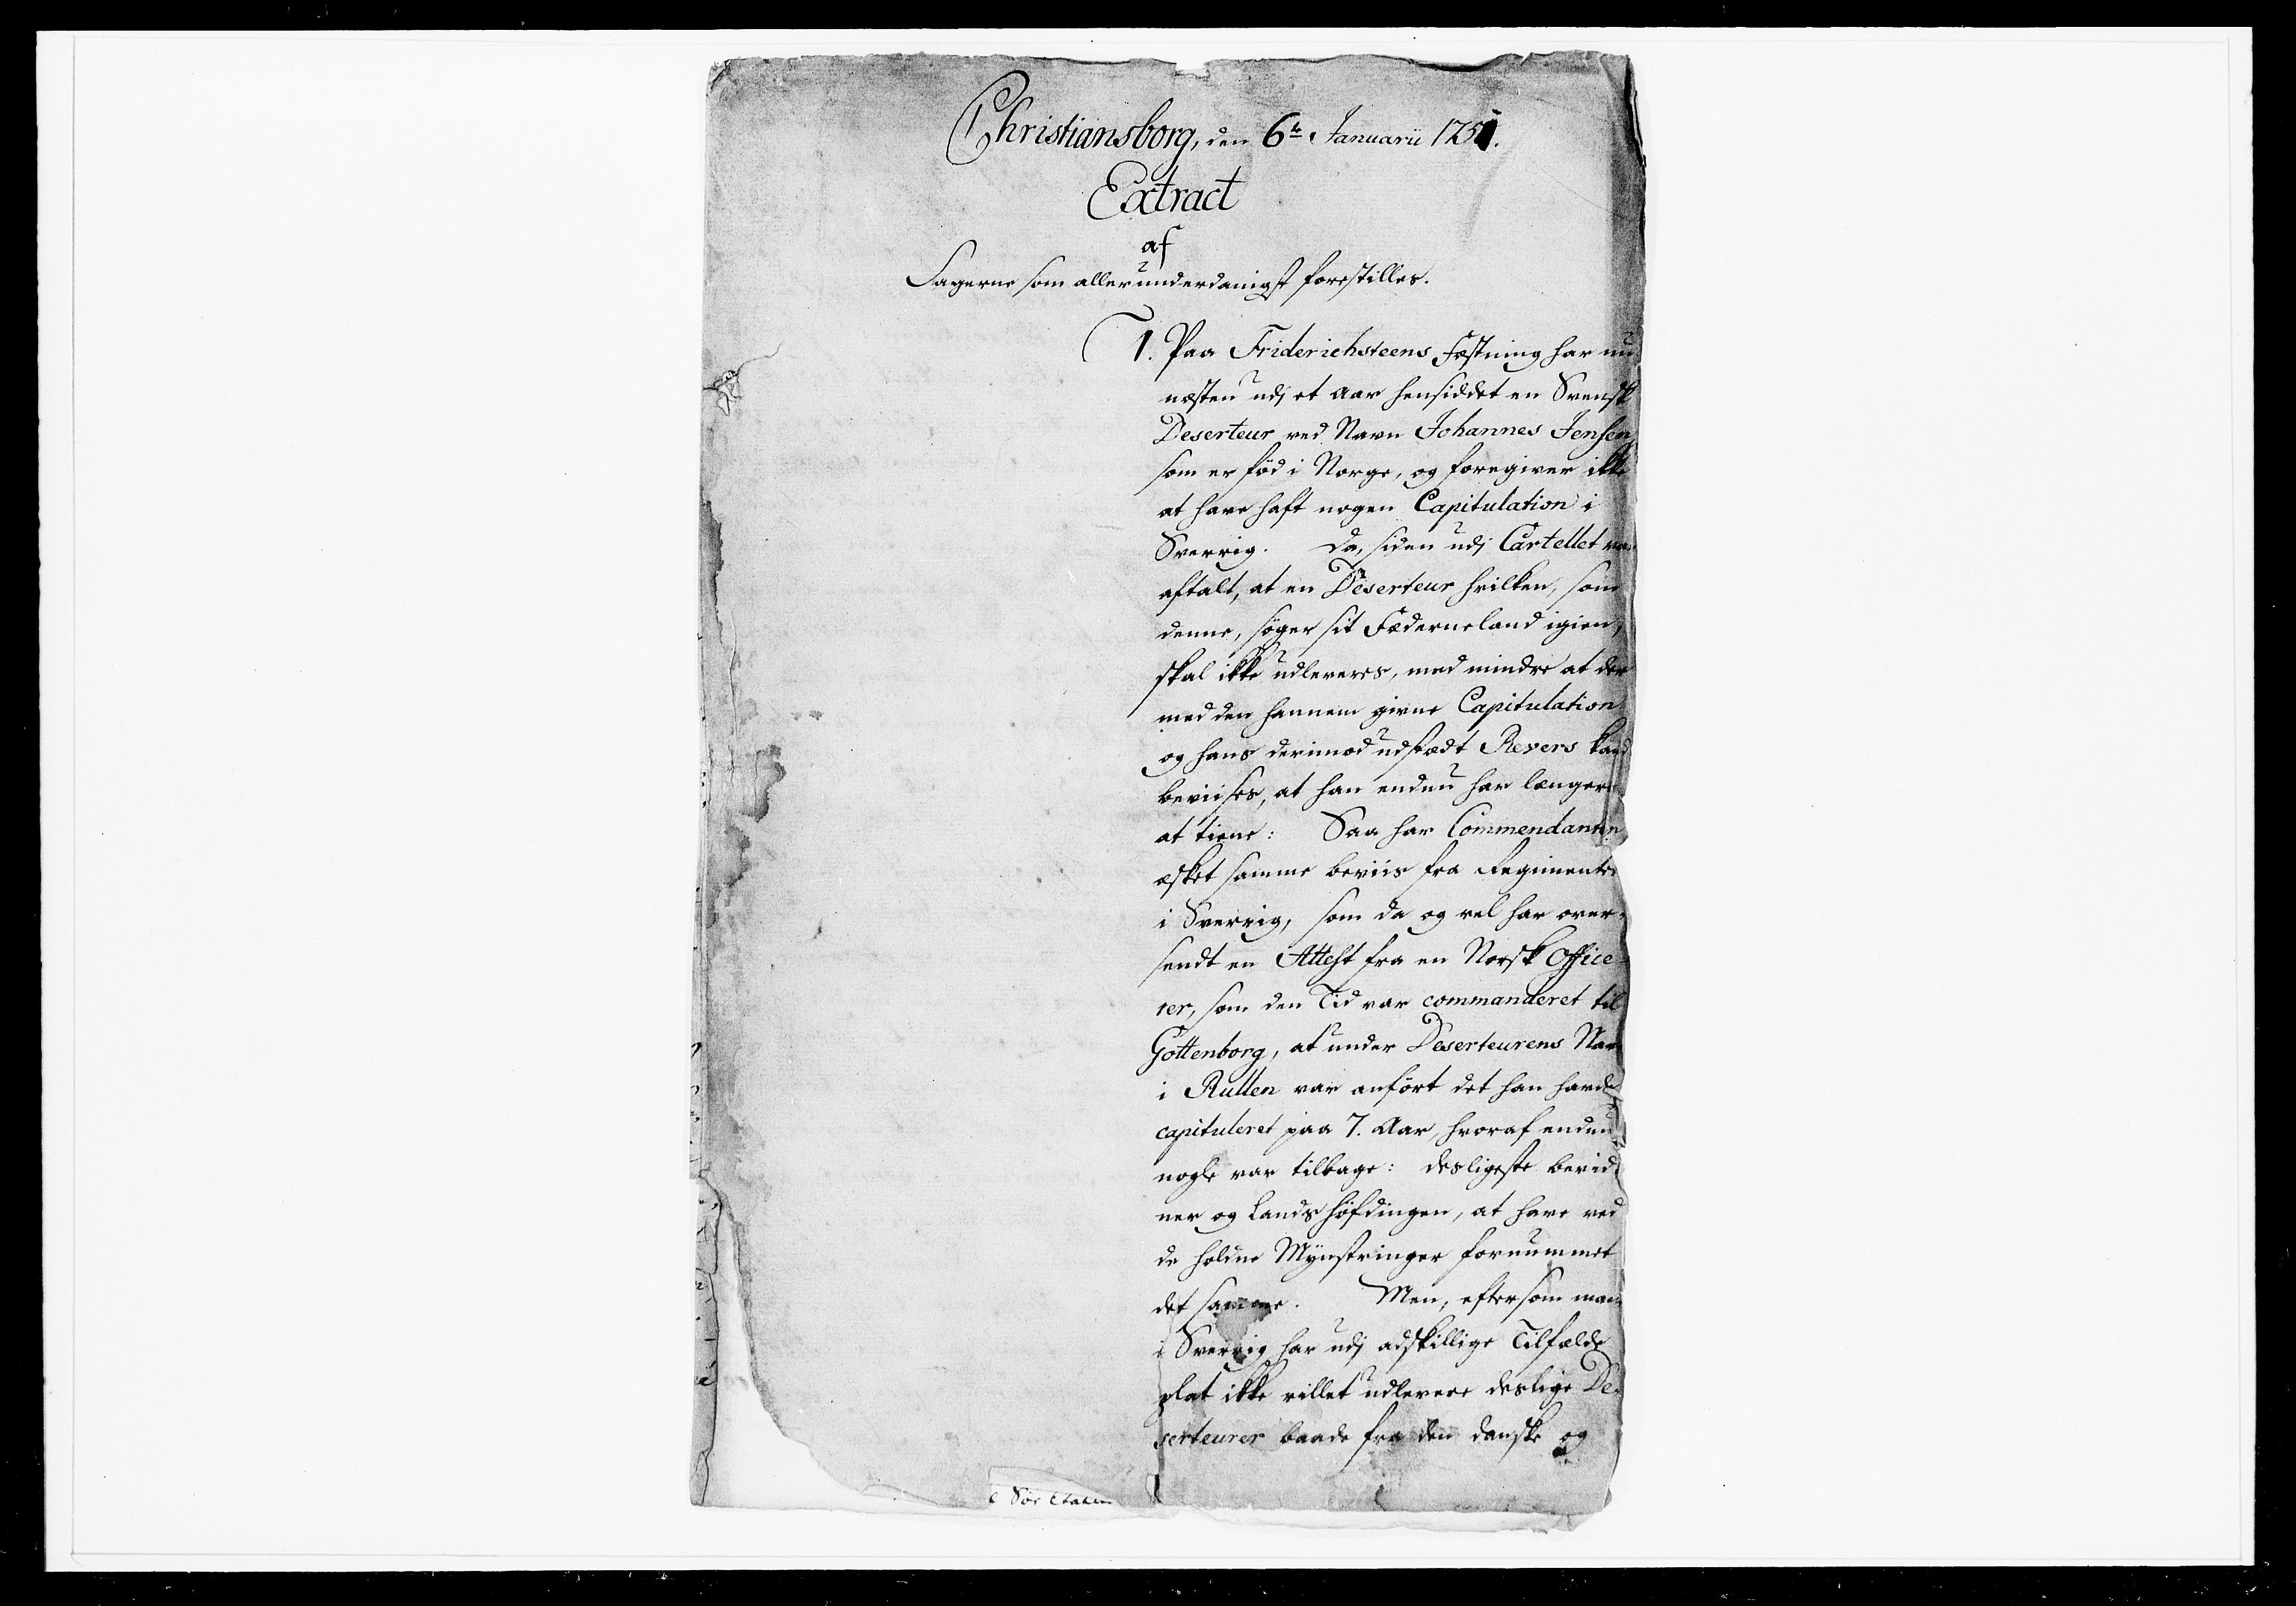 Christiansborg, den 6te Januarii 1751.
Extract
af
Sagerne som allerunderdanigst forestilles.
1. Paa Friderichsteens Fæstning har nu
næsten udj et Aar hensiddet en Svensk
Deserteur ved Navn Johannes Jensen
som er föd i Norge, og foregiver ikke
at have haft nogen Capitulation i
Sverrig. Da, siden udj Cartellet var
aftalt, at en Deserteur hvilken, som
denne, söger sit Fæderneland igien,
skal ikke udleveres, med mindre at der
med den hannem givne Capitulation
og hans derimod udstædt Revers kand
beviises, at han endnu har længere
at tiene: Saa har Commendanten
æsket samme beviis fra Regimentet
i Sverrig, som da og vel har over-
sendt en Attest fra en Norsk Office-
rer, som den Tid var commanderet til
Gottenborg, at under Deserteurens Navn
i Rullen var anfört det han havde
capituleret paa 7. Aar, hvoraf endnu
nogle var tilbage: desligeste bevid-
ner og Landshöfdingen, at have ved
de holdne Mynstringer fornummet
det samme. Men, eftersom man
i Sverrig har udj adskillige Tilfælde
plat ikke villet udlevere deslige De-
serteurer baade fra den danske og